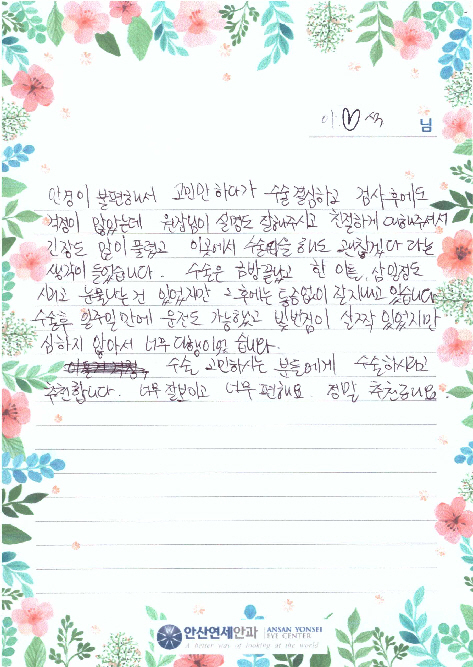 이♡석 님
안경이 불편해서 고민만 하다가 수술 결심하고 검사후에도
걱정이 많았는데 원장님이 설명도 잘해주시고 친절하게 대해주셔서
긴장도 많이 풀렸고 이곳에서 수술을 해도 괜찮겠다 라는
생각이 들었습니다. 수술은 금방끝났고 한 이틀, 삼일정도
시리고 눈물나는건 있었지만 그후에는 통증없이 잘지내고 있습니다
수술후 일주일만에 운전도 가능했고 빛번짐이 살짝 있었지만
심하지 않아서 너무 다행이였습니다.
수술 고민하시는 분들에게 수술하시라고
추천합니다. 너무 잘보이고 너무 편해요. 정말 추천드려요.
안산연세안과 ANSAN YONSEI EYE CENTER
A better way of looking at the world